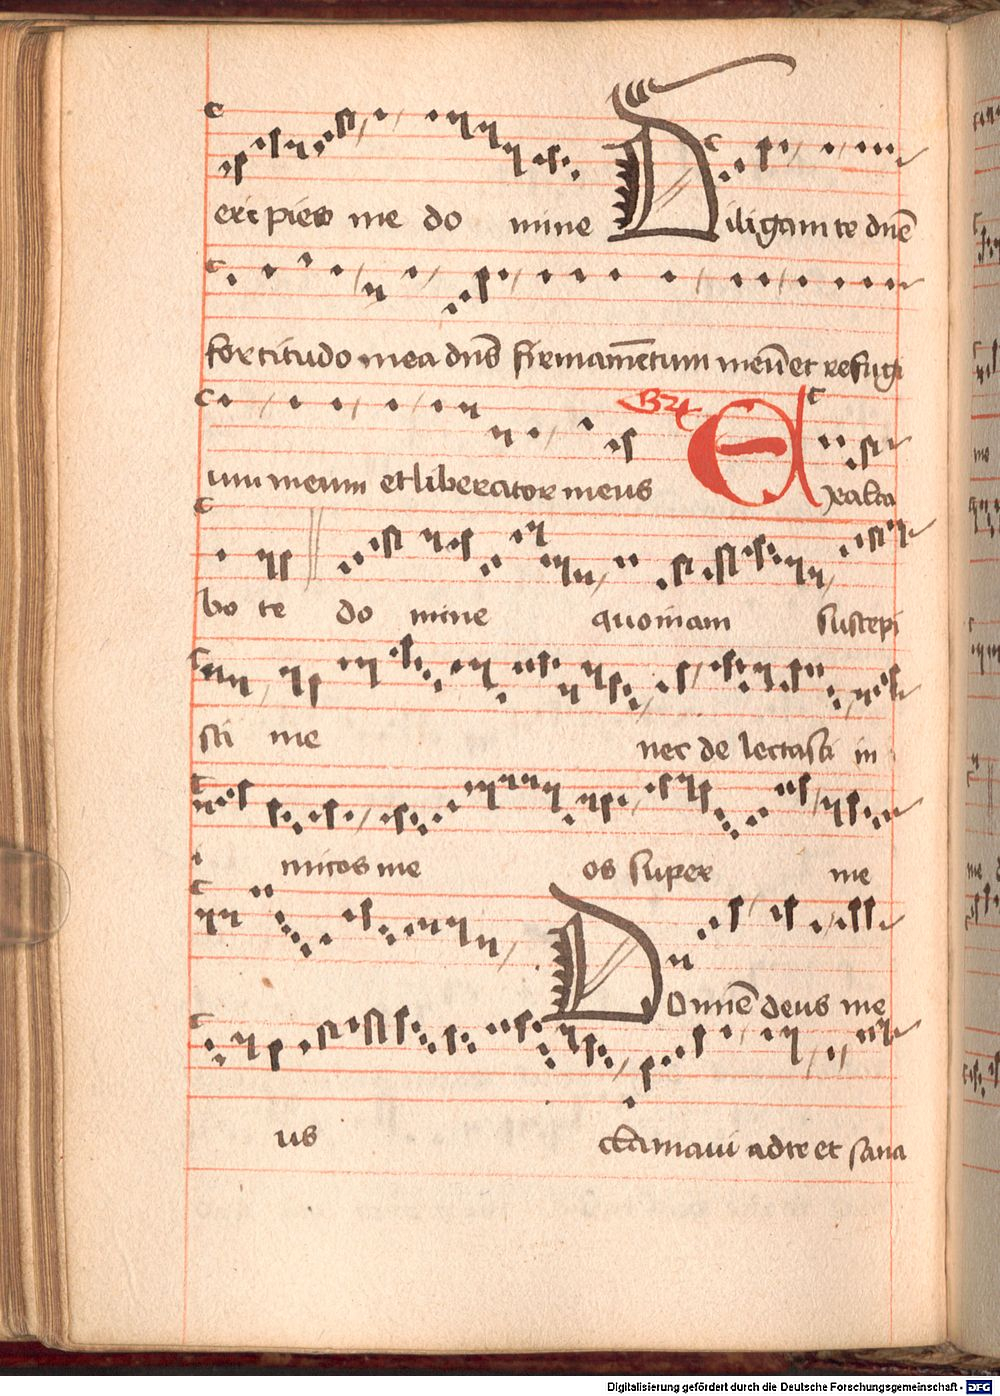 eripies me do mine Diligam te dn̄e
fortitudo mea dn̄s firmamētum meū et refugi
um meum et liberator meus Exalta
bo te do mine quoniam suscepi
sti me nec delectasti in
i micos me os super me
Domīe deus me
us clamavi ad te et sana
Digitalisierung gefördert durch die Deutsche Forschungsgemeinschaft - DFG